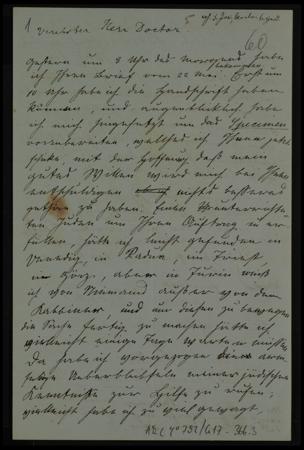 1 verehrter Herr Doctor
60
Gestern um 8 Uhr des Morgens habe
ich Ihren Brief vom 22 Mai erhalten. Erst um
10 Uhr habe ich die Handschrift haben
können, und augenblicklich habe
ich mich hingesetzt um das Specimen
vorzubereiten, welches ich Ihnen jetzt
schicke, mit der Hoffnung daß mein
guter Willen wird mich bei Ihnen
entschuldigen nichts besseres
gethan zu haben. Einen
Juden um Ihren Auftrag zu er-
füllen, hätte ich leicht gefunden in
Venedig, in Padua, in Triest,
in Görz, aber in Turin weiß
ich von Niemand außer von dem
Rabbiner, und um diesen zu bewegen
die Sache fertig zu machen hätte ich
vielleicht einige Tage warten müssen.
Da habe ich vorgezogen die arm-
selige Ueberbleibseln meiner jüdischen
Kenntnisse zur Hilfe zu rufen;
vielleicht habe ich zu viel gewagt,
ARC 4° 792/G17-366.3